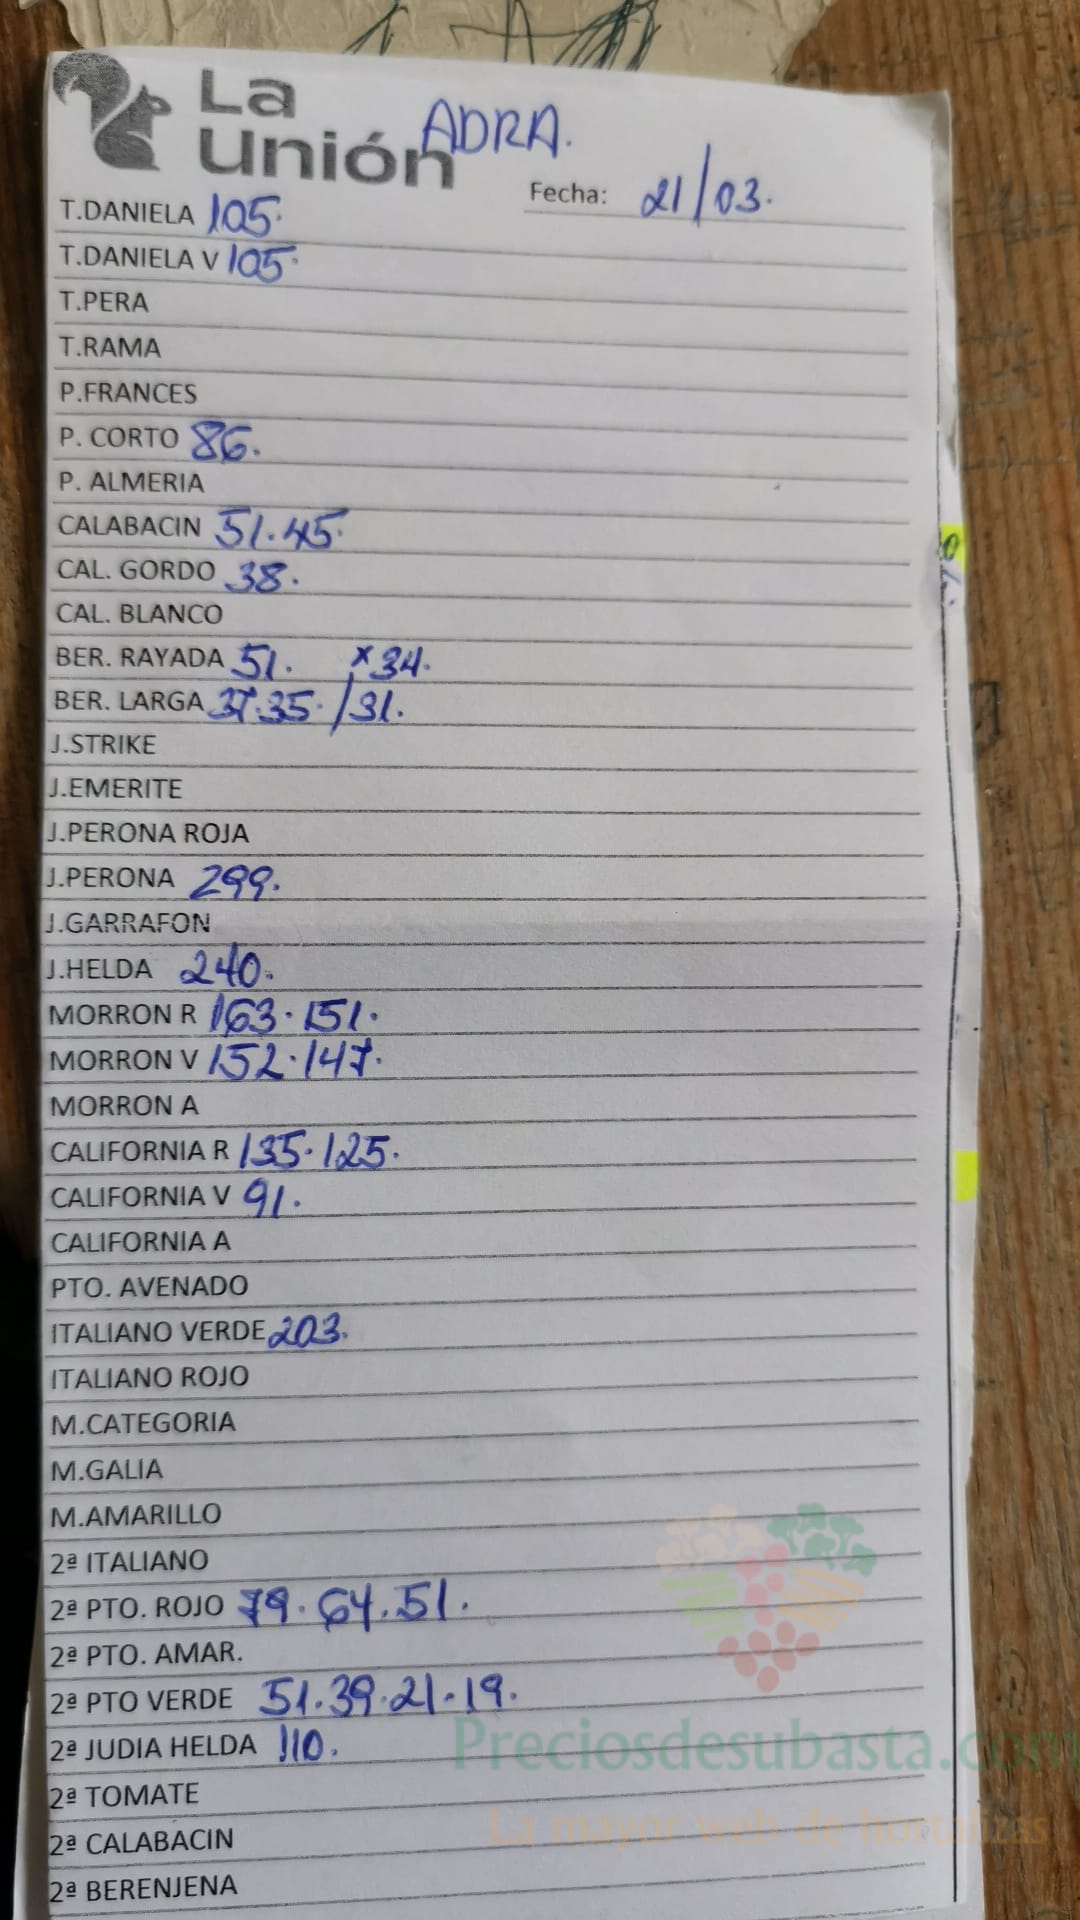 La
Unión ADRA.
Fecha: 21/03.
T.DANIELA 105.
T.DANIELA V 105.
T.PERA
T.RAMA
P.FRANCES
P. CORTO 86.
P. ALMERIA
CALABACIN 51.45.
CAL. GORDO 38.
CAL. BLANCO
BER. RAYADA 51. x34.
BER. LARGA 37.35. /31.
J.STRIKE
J.EMERITE
J.PERONA ROJA
J.PERONA 299.
J.GARRAFON
J.HELDA 240.
MORRON R 163.151.
MORRON V 152.147.
MORRON A
CALIFORNIA R 135.125.
CALIFORNIA V 91.
CALIFORNIA A
PTO. AVENADO
ITALIANO VERDE 203.
ITALIANO ROJO
M.CATEGORIA
M.GALIA
M.AMARILLO
2ª ITALIANO
2ª PTO. ROJO 79.64.51.
2ª PTO. AMAR.
2ª PTO VERDE 51.39.21.19.
2ª JUDIA HELDA 110.
2ª TOMATE
2ª CALABACIN
2ª BERENJENA
Preciosdesubasta.com
La mayor web de hortalizas